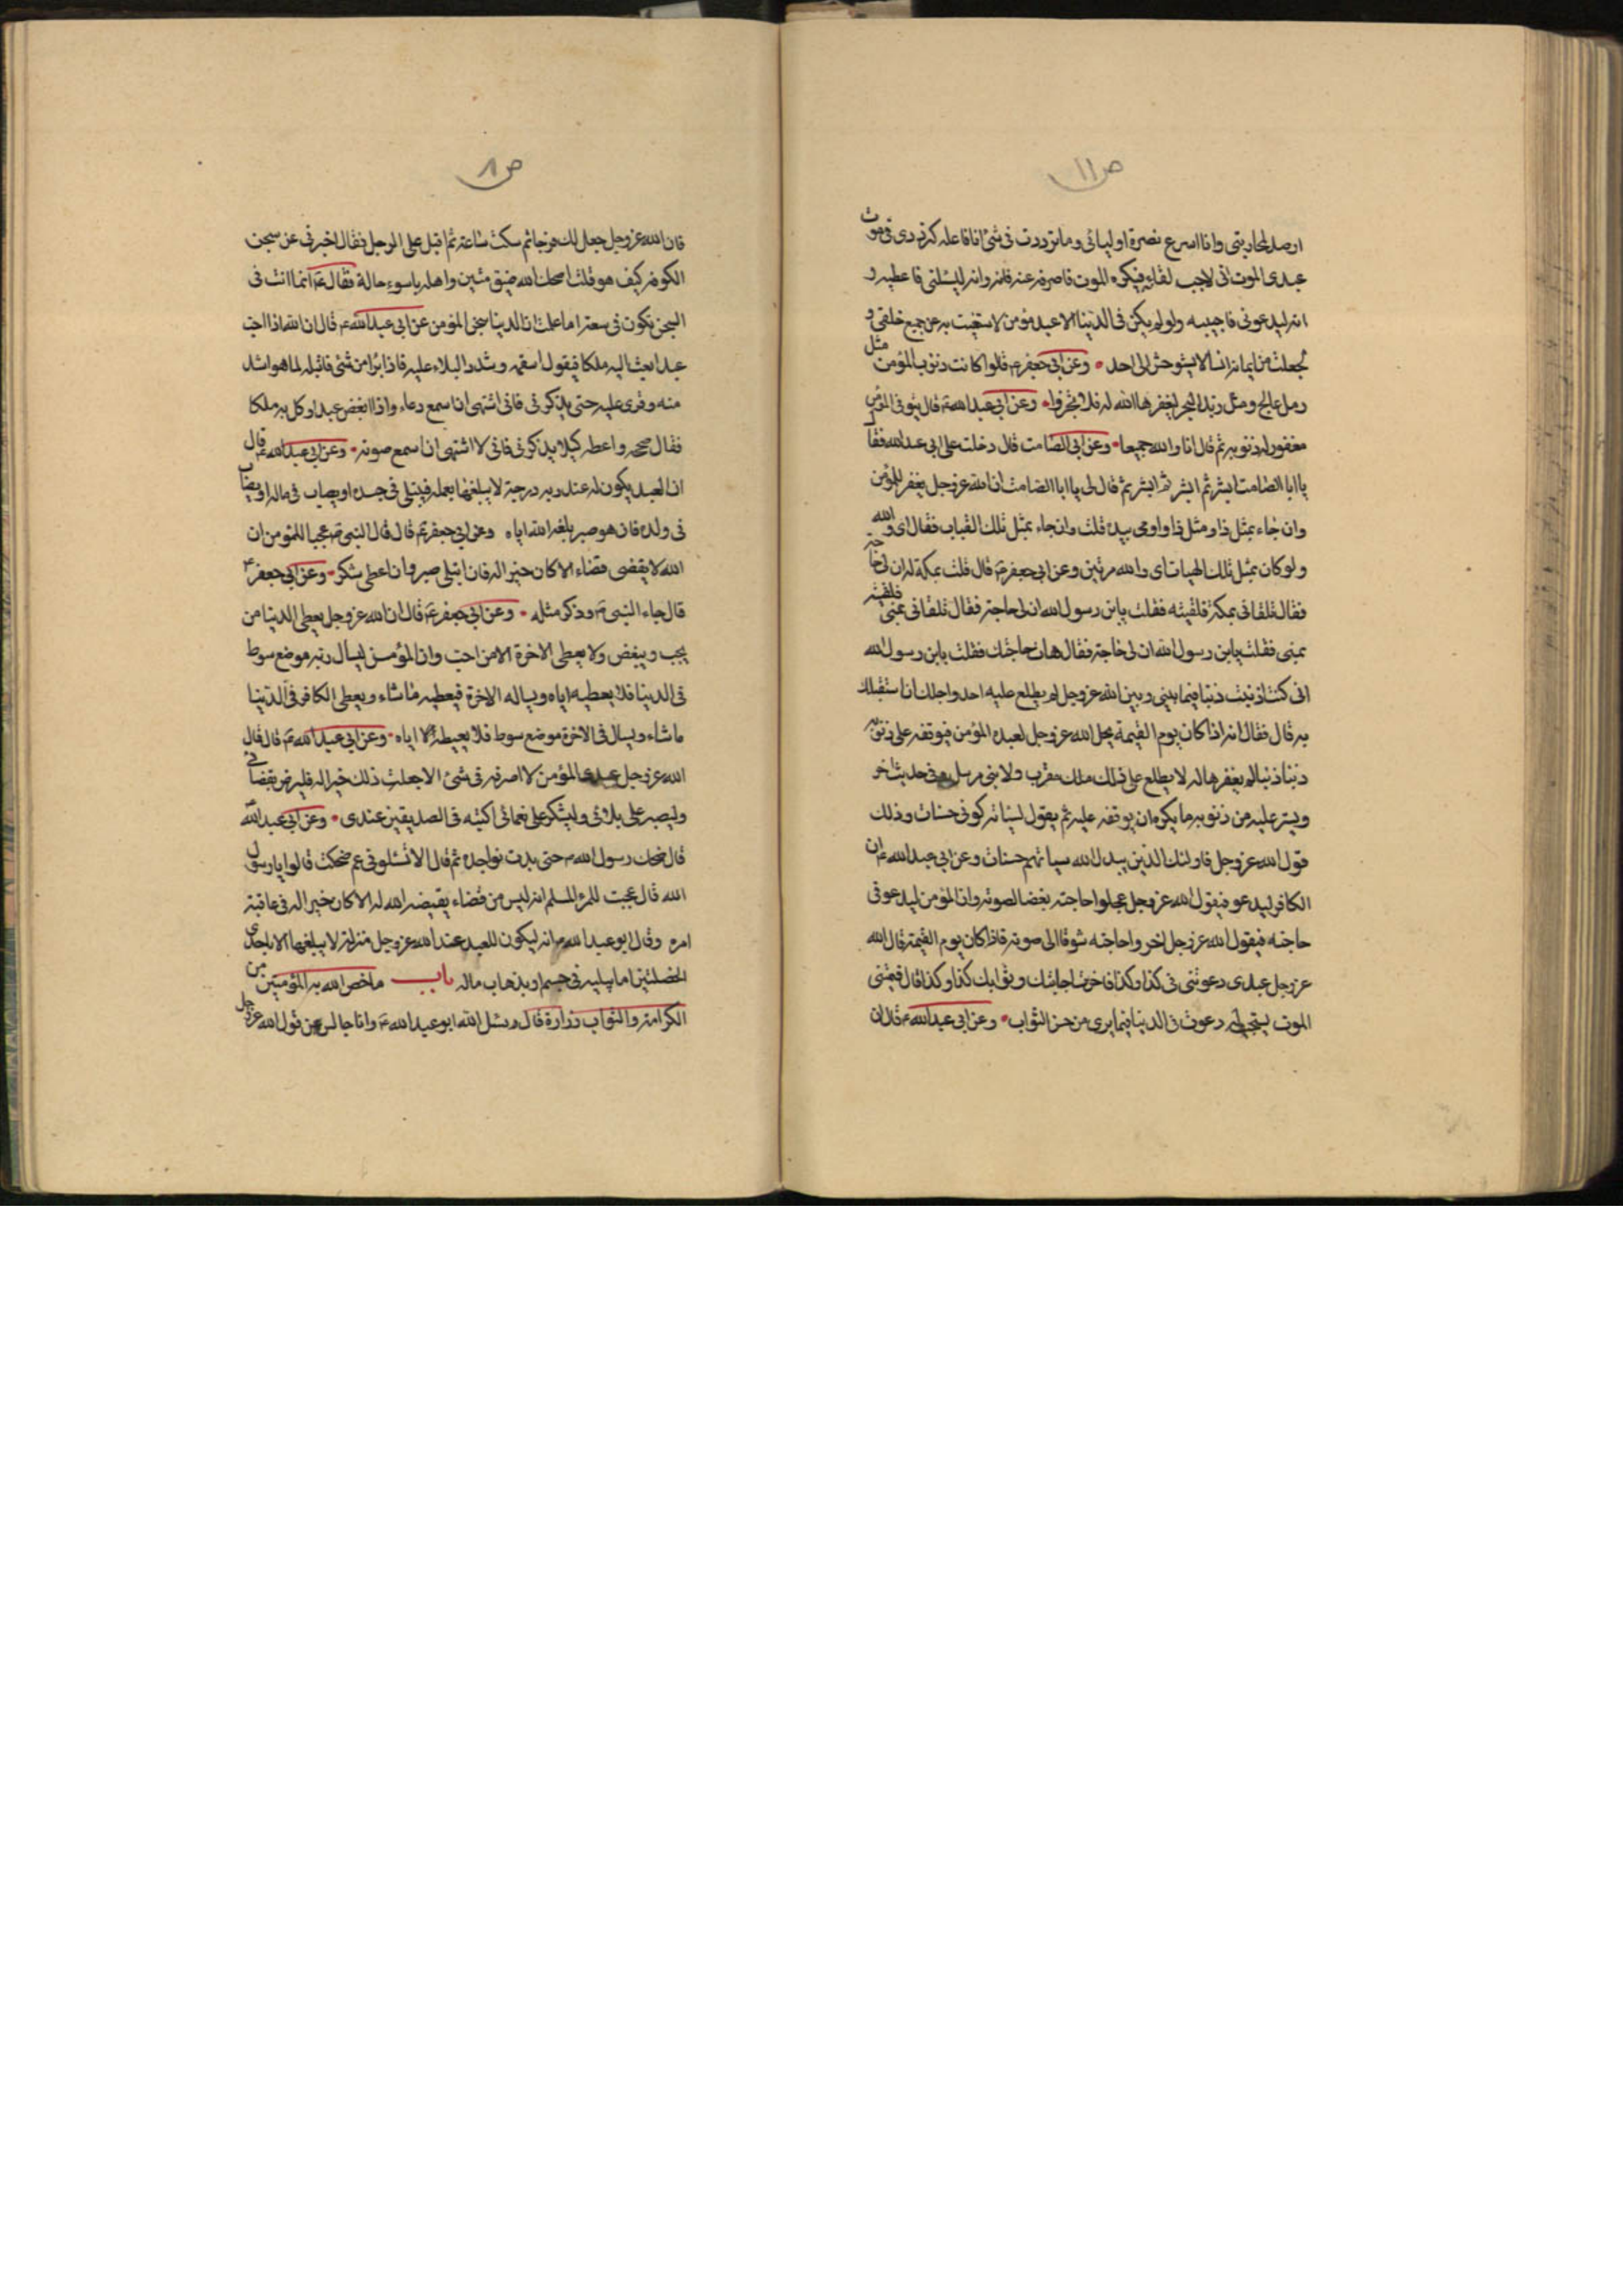 ص ١١
ارصد لمحاربتى وانا اسرع بنصرة اوليائى وما ترددت فى شئ انا فاعله كترددى فى موت
عبدى الموت انى لاحب لقائه فيكره الموت فاصرفه عنه فانه وانه ليسئلنى فاعطيه و
انه ليدعونى فاجيبه ولو لم يكن فى الدنيا الا عبد مؤمن لاستغنيت به عن جميع خلقى و
لجعلت من ايمانه انسا لا يستوحش الى احد وعن ابى جعفر ع قلوا كانت ذنوب المؤمن مثل
رمل عالج ومثل زبد البحر لغفرها الله له فلا تجتروا وعن ابى عبد الله ع قال يتوفى المؤمن
مغفور له ذنوبه ثم قال انا والله جميعا وعن ابى الصامت قال دخلت على ابى عبد الله فقال
يا ابا الصامت ابشر ثم ابشر ثم ابشر ثم قال لى يا ابا الصامت ان الله عز وجل يغفر للمؤمن
وان جاء بمثل ذا ومثل ذا واومى بيده قلت وان جاء بمثل تلك القباب فقال اى والله
ولو كان بمثل تلك الهيات اى والله مرتين وعن ابى جعفر ع قال قلت بمكة له ان لى حاجة
فقال تلقانى بمكة فلقيته فقلت يابن رسول الله ان لى حاجة فقال تلقانى بمنى فلقيته
بمنى فقلت يابن رسول الله ان لى حاجة فقال هات حاجتك فقلت يابن رسول الله
انى كنت اذنبت ذنبا فيما بينى وبين الله عز وجل لم يطلع عليه احد واجلك ان استقبلك
به قال فقال انه اذا كان يوم القيمة تجلى الله عز وجل لعبده المؤمن فيوقفه على ذنوبه
ذنبا ذنبا ثم يغفرها له لا يطلع على ذلك ملك مقرب ولا نبى مرسل وفى حديث اخر
ويستر عليه من ذنوبه ما يكره ان يوقفه عليه ثم يقول لسيئاته كونى حسنات وذلك
قول الله عز وجل فاولئك الذين يبدل الله سياتهم حسنات وعن ابى عبد الله ع ان
الكافر ليدعو فيقول الله عز وجل عجلوا حاجته بغضا لصوته وان المؤمن ليدعو فى
حاجته فيقول الله عز وجل اخروا حاجته شوقا الى صوته فاذا كان يوم القيمة قال الله
عز وجل عبدى دعوتنى فى كذا وكذا فاخرت اجابتك وثوابك كذا وكذا قال فيتمنى
الموت يستجب له دعوت فى الدنيا فيما يرى من حسن الثواب وعن ابى عبد الله ع قال ان
ص ٨
فان الله عز وجل جعل لك فرجا ثم سكت ساعة ثم اقبل على الرجل فقال اخبرنى عن سجن
الكوفه كيف هو قلت اصحك الله ضيق منتن واهله باسوء حالة فقال ع انما انت فى
السجن تكون فى سعة اما علمت ان الدنيا سجن المؤمن عن ابى عبد الله ع قال ان الله اذا احب
عبدا بعث اليه ملكا فيقول اسقمه وشدد البلاء عليه فاذا برا من شئ فابتله لما هو اشد
منه وقوى عليه حتى يذكرنى فانى اشتهى ان اسمع دعاءه واذا ابغض عبدا وكل به ملكا
فقال صححه واعطه كيلا يذكرنى فانى لا اشتهى ان اسمع صوته وعن ابى عبد الله ع قال
ان العبد يكون له عند ربه درجة لا يبلغها بعمله فيبتلى فى جسده او يصاب فى ماله او يصاب
فى ولده فان هو صبر بلغه الله اياه وعن ابى جعفر ع قال قال النبى ص عجبا للمؤمن ان
الله لا يقضى قضاء الا كان خيرا له فان ابتلى صبر وان اعطى شكر وعن ابى جعفر ع
قال جاء النبى ص وذكر مثله وعن ابى جعفر ع قال ان الله عز وجل يعطى الدنيا من
يحب ويبغض ولا يعطى الاخرة الا من احب وان المؤمن ليسال ربه موضع سوط
فى الدنيا فلا يعطيه اياه ويساله الاخرة فيعطيه ما شاء ويعطى الكافر فى الدنيا
ما شاء ويسال فى الاخرة موضع سوط فلا يعطيه اياه وعن ابى عبد الله ع قال قال
الله عز وجل عبدى المؤمن لا اصرفه فى شئ الا جعلت ذلك خيرا له فليرض بقضائى
وليصبر على بلائى وليشكر على نعمائى اكتبه فى الصديقين عندى وعن ابى عبد الله
قال ضحك رسول الله ص حتى بدت نواجده ثم قال الا تسئلونى عم ضحكت قالوا يا رسول
الله قال عجبت للمرء المسلم انه ليس من قضاء يقيضه الله له الا كان خيرا له فى عاقبة
امره وقال ابو عبد الله ع انه ليكون للعبد عند الله عز وجل منزلة لا يبلغها الا باحدى
الخصلتين اما ببليه فى جسم او بذهاب ماله باب ما خص الله به المؤمنين من
الكرامة والثواب زرارة قال سئل الله ابو عبد الله ع وانا جالس عن قول الله عز وجل